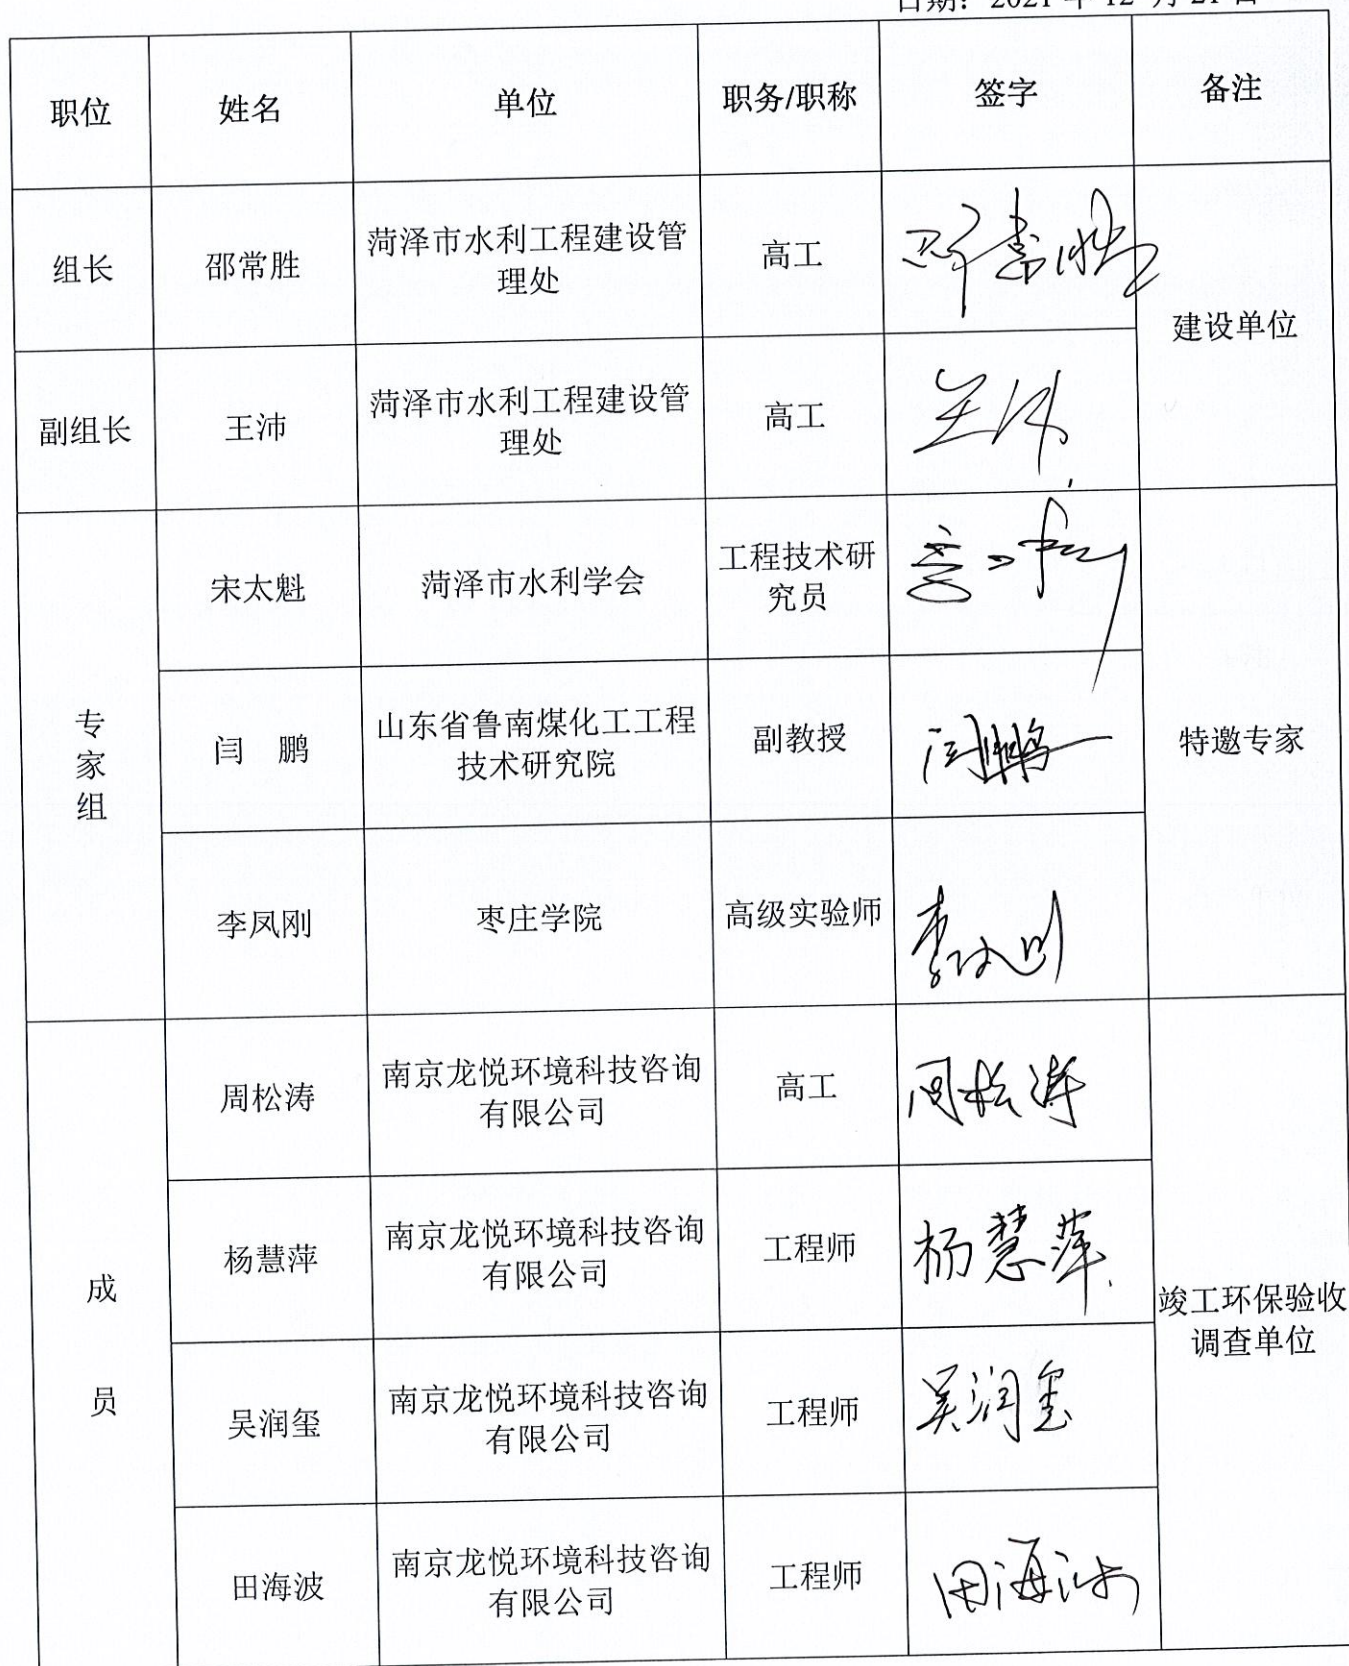 日期：2021 年 12 月 21 日
职位 姓名 单位 职务/职称 签字 备注
组长 邵常胜 菏泽市水利工程建设管理处 高工 邵常胜 建设单位
副组长 王沛 菏泽市水利工程建设管理处 高工 王沛
专家组 宋太魁 菏泽市水利学会 工程技术研究员 特邀专家
闫 鹏 山东省鲁南煤化工工程技术研究院 副教授 闫鹏
李凤刚 枣庄学院 高级实验师 李凤刚
成员 周松涛 南京龙悦环境科技咨询有限公司 高工 周松涛 竣工环保验收调查单位
杨慧萍 南京龙悦环境科技咨询有限公司 工程师 杨慧萍
吴润玺 南京龙悦环境科技咨询有限公司 工程师 吴润玺
田海波 南京龙悦环境科技咨询有限公司 工程师 田海波